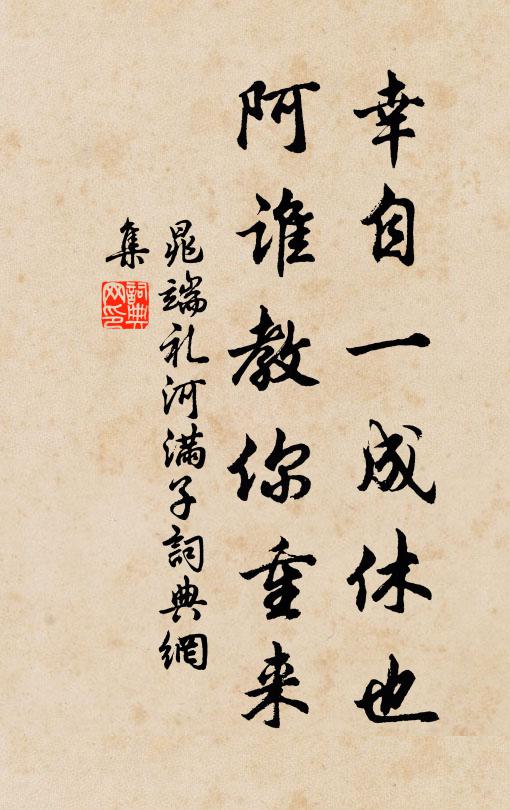 幸自一成休也
阿谁教你重来
晁端礼河满子詞典網
集
詞典网印